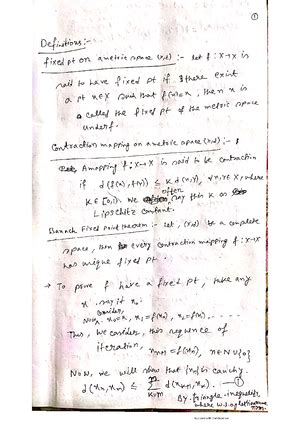 ①
Definitions:-
fixed pt on a metric space (X,d) :- let f: X→X is
said to have fixed pt if there exist
a pt x∈X such that f(x)=x, then x is
called the fixed pt of the metric space
under f.
Contraction mapping on a metric space (X,d) :-
A mapping f: X→X is said to be contraction
if d(f(x), f(y)) ≤ K d(x,y), ∀ x,y ∈ X, where
K ∈ [0,1). We often say this K as
Lipschitz constant.
Banach Fixed point theorem :- let, (X,d) be a complete
space, then every contraction mapping f: X→X
has unique fixed pt.
→ To prove f have a fixed pt, take any
x, say it x₀.
Consider,
x₀=x, x₁=f(x₀), x₂=f(x₁), .....
Thus, We consider, this sequence of
iteration, xₙ₊₁ = f(xₙ), n∈N∪{0}
Now, we will show that {xₙ} is cauchy.
d(xₙ, xₘ) ≤ Σ d(xₖ₊₁, xₖ) . —①
By triangle inequality,
where